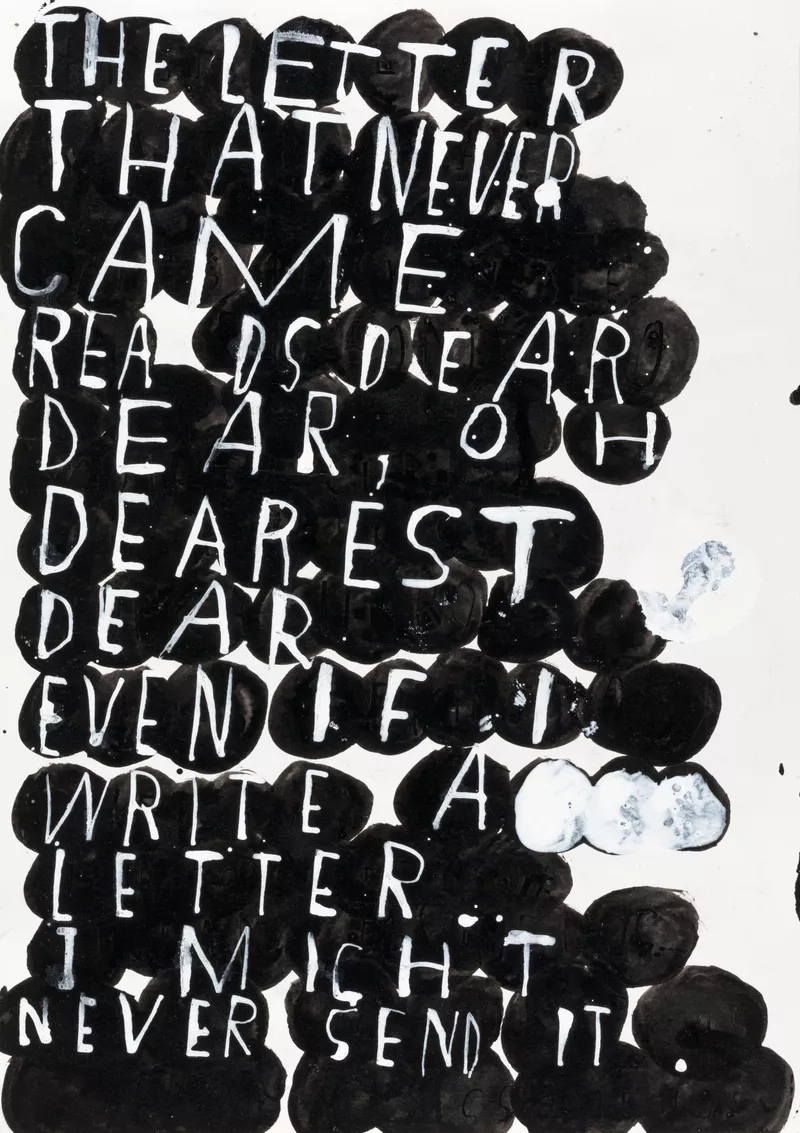 THE LETTER
THAT NEVER
CAME
READS DEAR
DEAR, OH
DEAREST
DEAR
EVEN IF I
WRITE A
LETTER.
I MIGHT
NEVER SEND IT